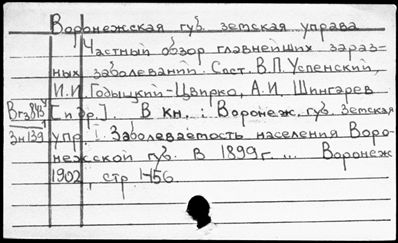 Воронежская губ. земская управа
Частный обзор главнейших зараз=
ных заболеваний. Сост. В.П. Успенский,
И.И. Годыцкий-Цвирко, А.И. Шингарев
[и др.]. В кн.: Воронеж. губ. земская
упр. : Заболеваемость населения Воро-
нежской губ. В 1899 г. ... Воронеж
1902, стр 1-156.
Зн139